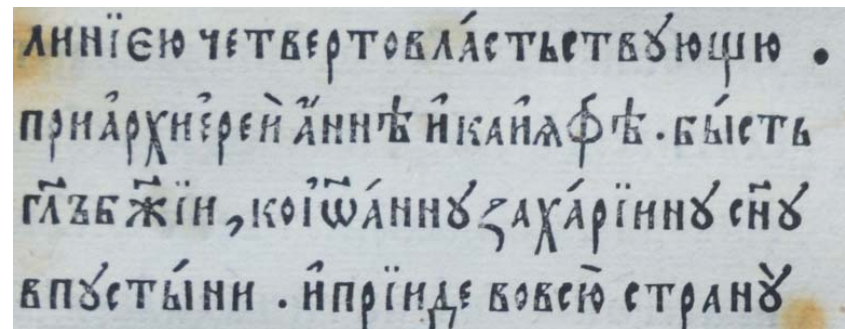 линїєю четвертовла́стьствꙋющю .
приа҆рхиере́й а҆́ннѣ и҆каиꙗ҆фѣ . бы́сть
гл҃ъ бж҃їи , коі҆ѡ҃а́ннꙋ заха́рїинꙋ сн҃ꙋ
впꙋсты́ни . и҆прїиде вовсю̀ странꙋ̀